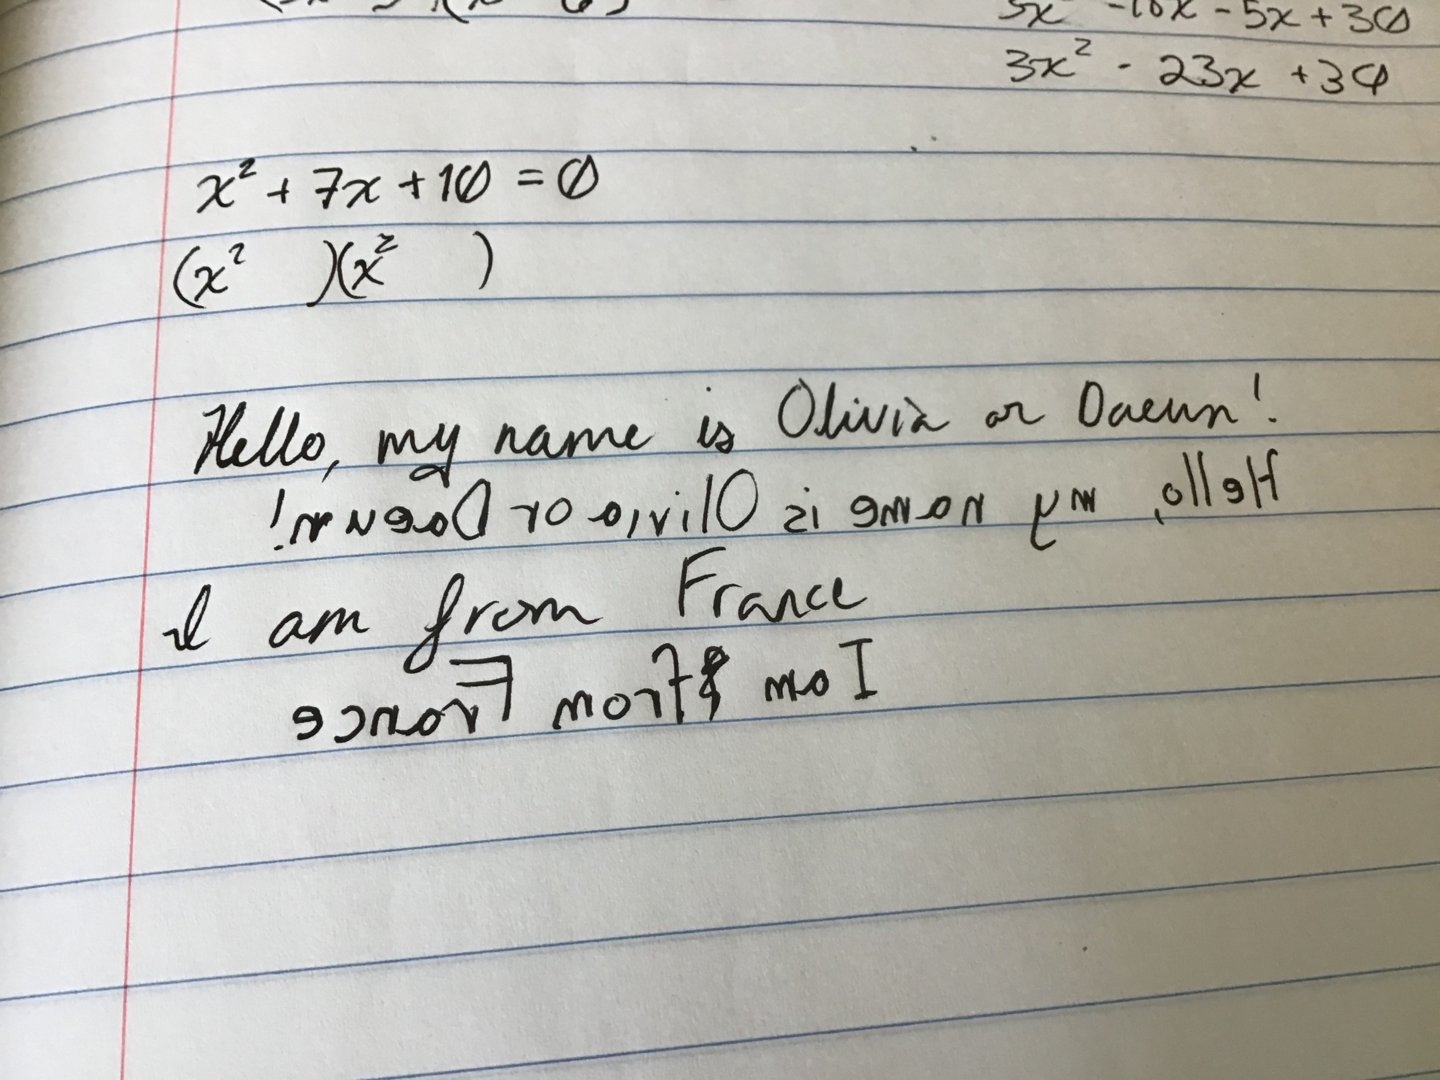 3x² - 18x - 5x + 30
3x² - 23x + 30
x² + 7x + 10 = 0
(x² )(x² )
Hello, my name is Olivia or Daeun!
Hello, my name is Olivia or Daeun!
I am from France
I am from France